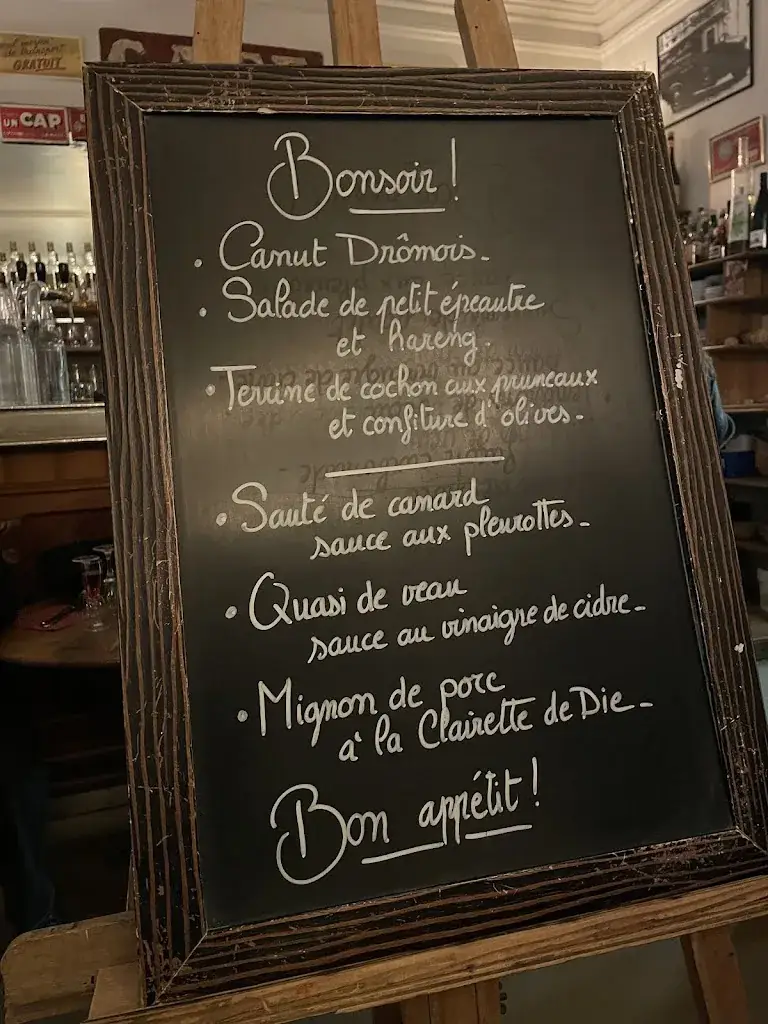 GRATUIT
CAP
Bonsoir !
• Canut Drômois -
• Salade de petit épeautre
et hareng .
• Terrine de cochon aux pruneaux
et confiture d'olives -
• Sauté de canard
sauce aux pleurottes -
• Quasi de veau
sauce au vinaigre de cidre -
• Mignon de porc
à la Clairette de Die -
Bon appétit !